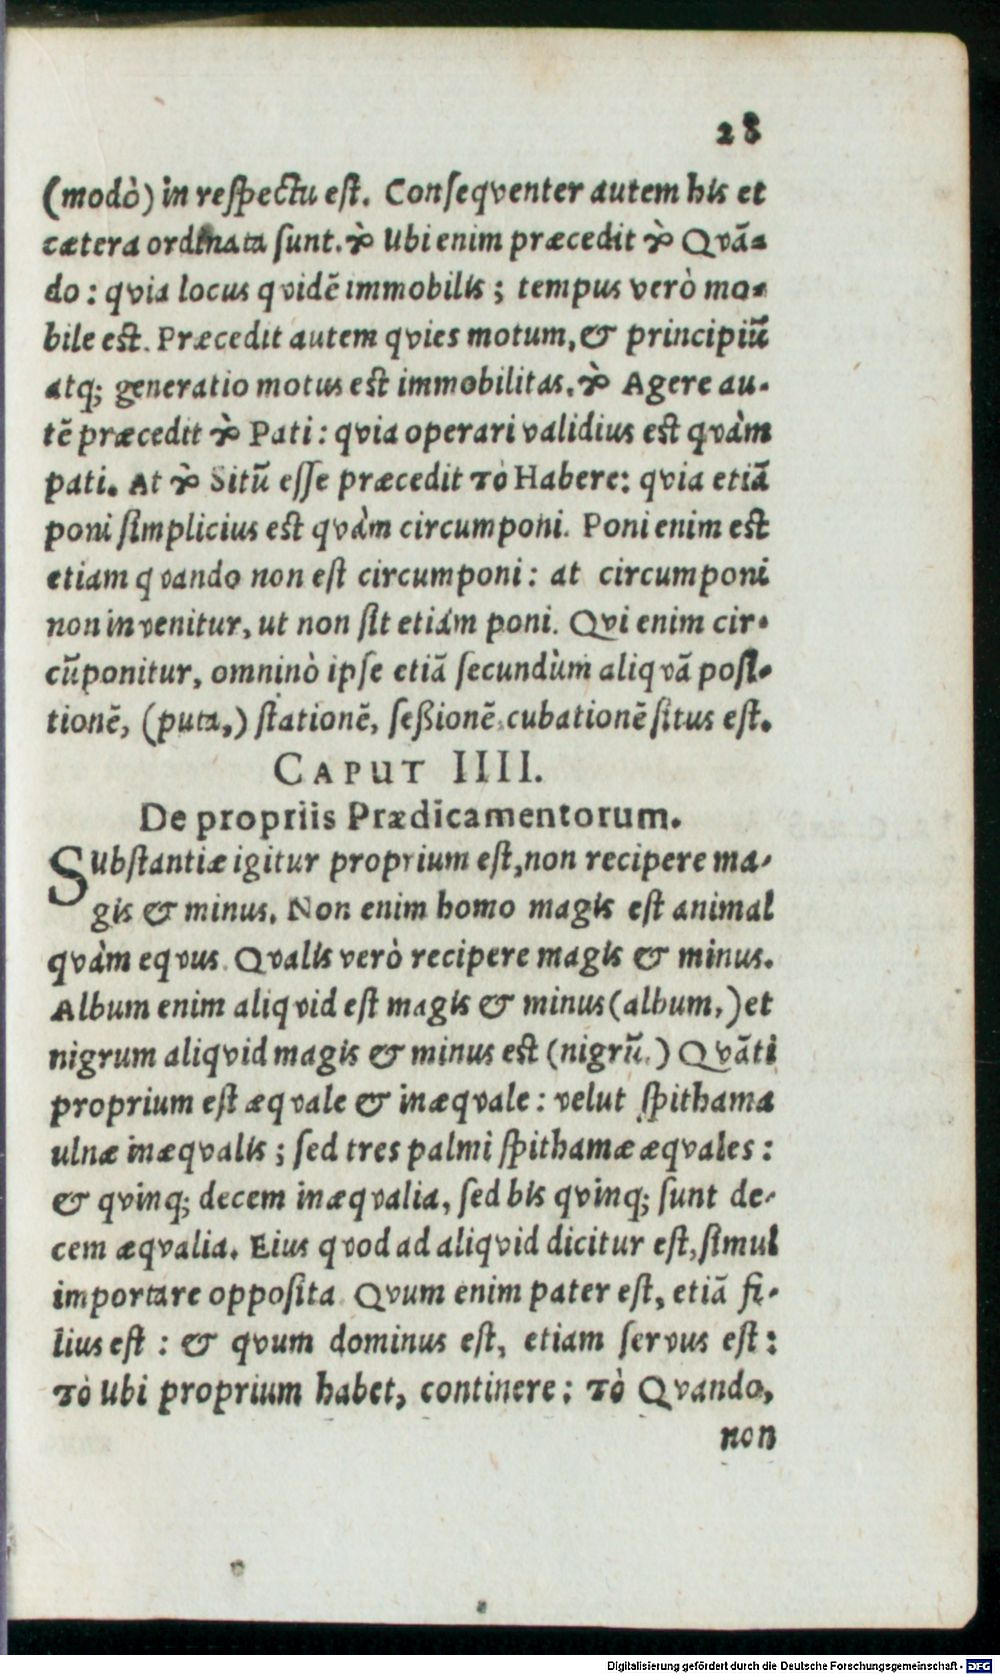 28
(modò) in reſpectu eſt. Conſeqventer autem his et
cætera ordinata ſunt. τὸ Ubi enim præcedit τὸ Qvā-
do: qvia locus qvidē immobilis; tempus verò mo-
bile eſt. Præcedit autem qvies motum, & principiū
atq; generatio motus eſt immobilitas. τὸ Agere au-
tē præcedit τὸ Pati: qvia operari validius eſt qvàm
pati. At τὸ Sitū eſſe præcedit τὸ Habere: qvia etiā
poni ſimplicius eſt qvàm circumponi. Poni enim eſt
etiam qvando non eſt circumponi: at circumponi
non invenitur, ut non ſit etiam poni. Qvi enim cir-
cūponitur, omninò ipſe etiā ſecundùm aliqvā poſi-
tionē, (puta,) ſtationē, ſeßionē, cubationē ſitus eſt.
CAPUT IIII.
De propriis Prædicamentorum.
Subſtantiæ igitur proprium eſt, non recipere ma-
gis & minus. Non enim homo magis eſt animal
qvàm eqvus. Qvalis verò recipere magis & minus.
Album enim aliqvid eſt magis & minus (album,) et
nigrum aliqvid magis & minus eſt (nigrū.) Qvāti
proprium eſt æqvale & inæqvale: velut ſpithama
ulnæ inæqvalis; ſed tres palmi ſpithamæ æqvales:
& qvinq; decem inæqvalia, ſed bis qvinq; ſunt de-
cem æqvalia. Eius qvod ad aliqvid dicitur eſt, ſimul
importare oppoſita. Qvum enim pater eſt, etiā fi-
lius eſt: & qvum dominus eſt, etiam ſervus eſt:
τὸ Ubi proprium habet, continere: τὸ Qvando,
non
Digitalisierung gefördert durch die Deutsche Forschungsgemeinschaft - DFG